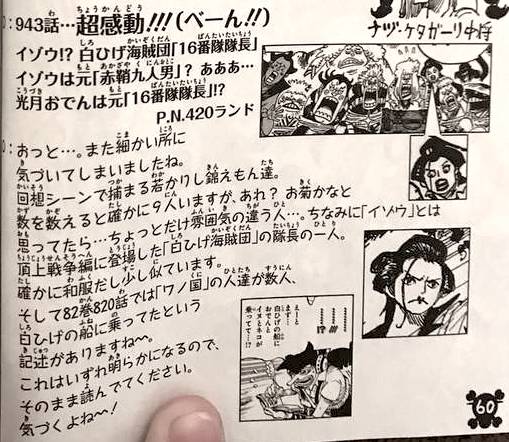 D:943話…超感動!!!(べーん!!)
イゾウ!? 白ひげ海賊団「16番隊隊長」
イゾウは元「赤鞘九人男」? あああ…
光月おでんは元「16番隊隊長」!?
P.N.420ランド
O:おっと…。また細かい所に
気づいてしまいましたね。
回想シーンで捕まる若かりし錦えもん達。
数を数えると確かに9人いますが、あれ? お菊かなと
思ってたら…ちょっとだけ雰囲気の違う人…。ちなみに「イゾウ」とは
頂上戦争編に登場した「白ひげ海賊団」の隊長の一人。
確かに和服だし少し似ています。
そして82巻820話では「ワノ国」の人達が数人、
白ひげの船に乗ってたという
記述がありますね〜。
これはいずれ明らかになるので、
そのまま読んでてください。
気づくよね〜!
ナヅ・ケタガーリ中将
えーと
まず…
白ひげの船に
おでんと
イヌとネコが
乗ってて…!?
60